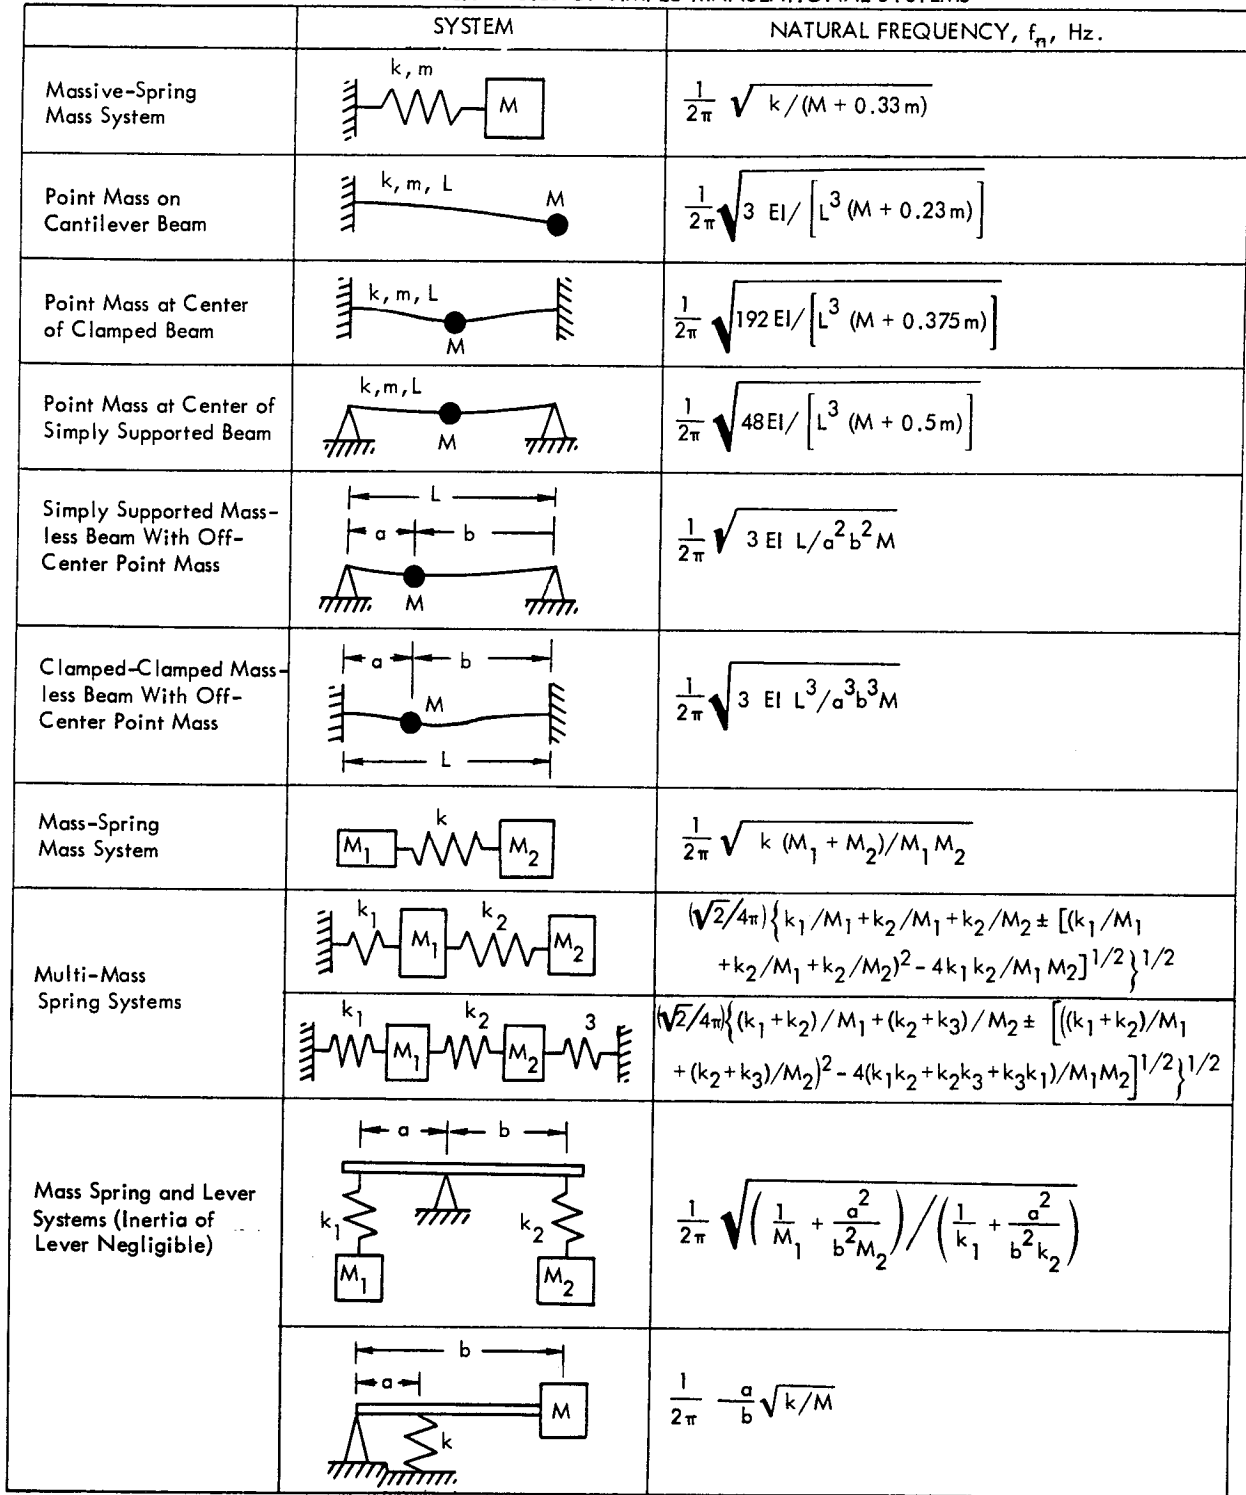 SYSTEM
NATURAL FREQUENCY, fn, Hz.
Massive-Spring
Mass System
k, m
M
1/2π √ k/(M + 0.33m)
Point Mass on
Cantilever Beam
k, m, L
M
1/2π √3 EI/ [L³ (M + 0.23m)]
Point Mass at Center
of Clamped Beam
k, m, L
M
1/2π √192 EI/ [L³ (M + 0.375m)]
Point Mass at Center of
Simply Supported Beam
k, m, L
M
1/2π √48EI/ [L³ (M + 0.5m)]
Simply Supported Mass-
less Beam With Off-
Center Point Mass
L
a b
M
1/2π √ 3 EI L/a²b²M
Clamped-Clamped Mass-
less Beam With Off-
Center Point Mass
a b
M
L
1/2π √3 EI L³/a³b³M
Mass-Spring
Mass System
k
M₁ M₂
1/2π √ k (M₁ + M₂)/M₁ M₂
Multi-Mass
Spring Systems
k₁ k₂
M₁ M₂
(√2/4π){k₁/M₁ + k₂/M₁ + k₂/M₂ ± [(k₁/M₁
+ k₂/M₁ + k₂/M₂)² - 4k₁k₂/M₁M₂]^1/2}^1/2
k₁ k₂ 3
M₁ M₂
(√2/4π){(k₁ + k₂)/M₁ + (k₂ + k₃)/M₂ ± [((k₁ + k₂)/M₁
+ (k₂ + k₃)/M₂)² - 4(k₁k₂ + k₂k₃ + k₃k₁)/M₁M₂]^1/2}^1/2
Mass Spring and Lever
Systems (Inertia of
Lever Negligible)
a b
k₁ k₂
M₁ M₂
1/2π √(1/M₁ + a²/b²M₂)/(1/k₁ + a²/b²k₂)
b
a
M
k
1/2π a/b √k/M